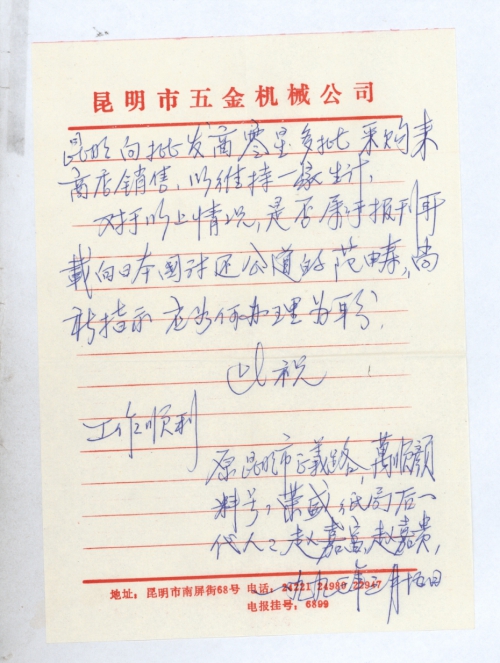 昆明市五金机械公司
昆明向批发商零星多批采购来
商店销售，以维持一家生计，
对于以上情况，是否属于报刊所
载向日本国讨还公道的范畴，尚
祈指示 应当何办理为盼，
此祝
工作顺利
原昆明市正义路，萬顺颜
料号，荣盛纸局后一
代人：赵嘉富，赵嘉贵，
一九九 年三月 日
地址：昆明市南屏街68号 电话：24221 24980 22947
电报挂号：6899